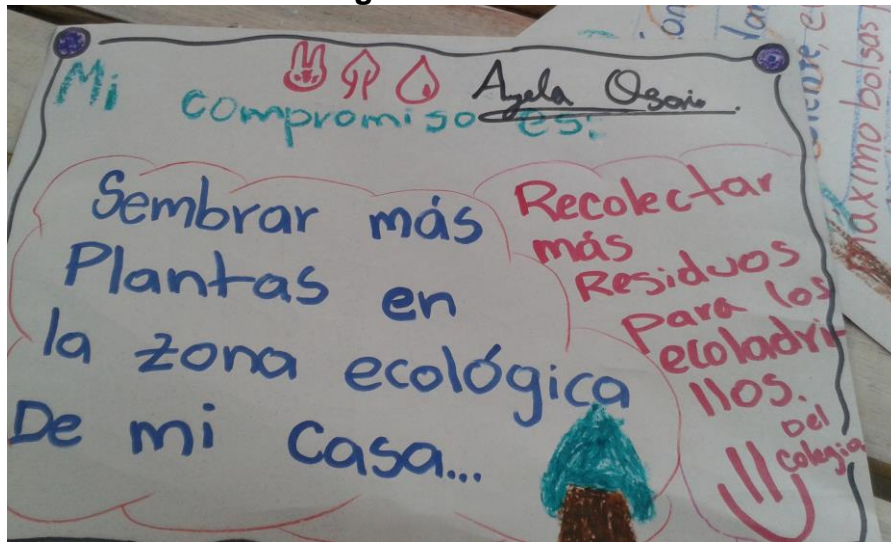 Mi
compromiso es:
Sembrar más
Plantas en
la zona ecológica
De mi casa...
Recolectar
más
Residuos
para los
ecoladri
llos.
Del
colegio
máximo bolsas